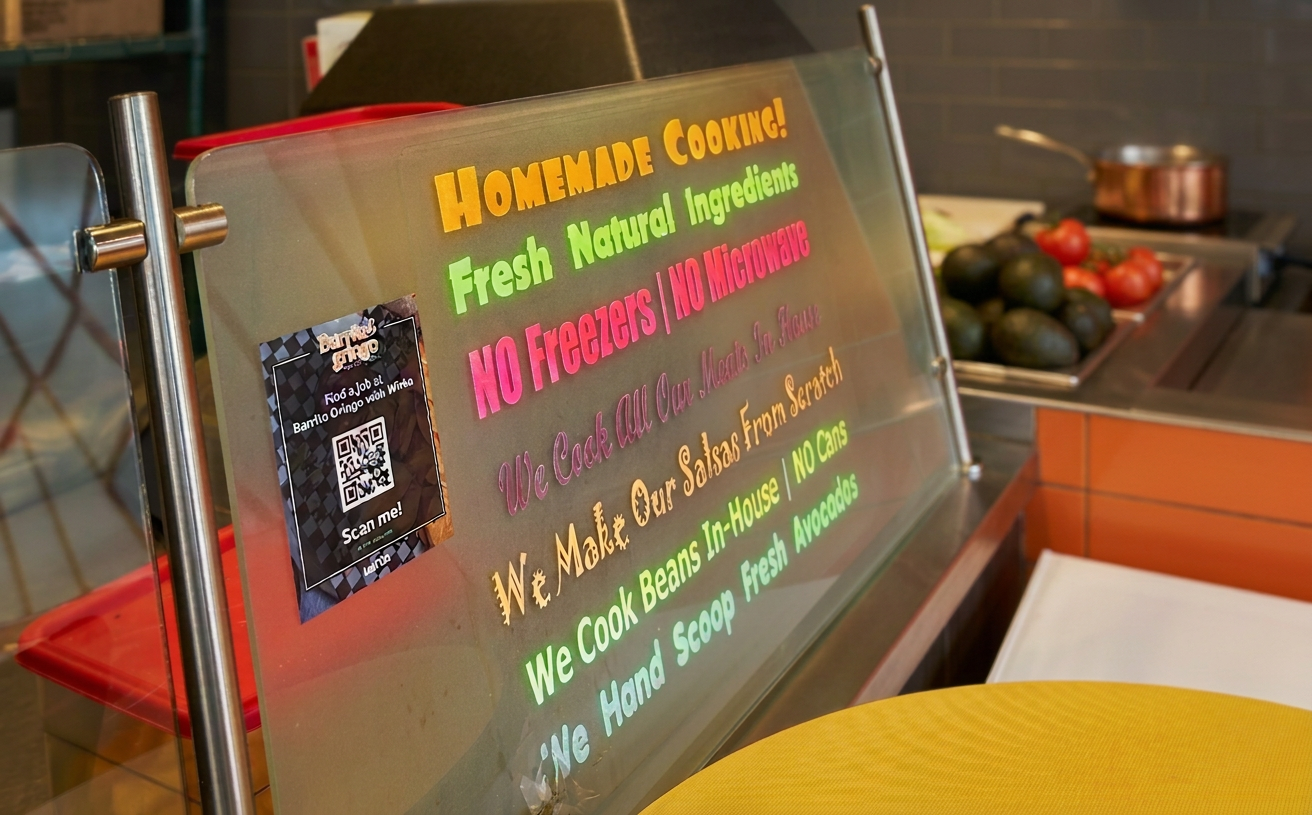 HOMEMADE COOKING!
Fresh Natural Ingredients
NO Freezers | NO Microwave
We Cook All Our Meats In House
We Make Our Salsas From Scratch
We Cook Beans In-House | NO Cans
We Hand Scoop Fresh Avocados
Barrio
gringo
Find a job at
Barrio Gringo with
Scan me!